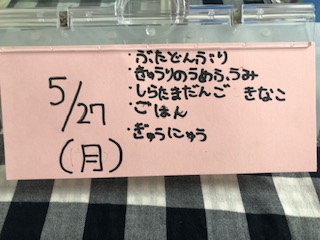 5/27
(月)
・ぶたどんぶり
・きゅうりのうめふうみ
・しらたまだんご きなこ
・ごはん
・ぎゅうにゅう